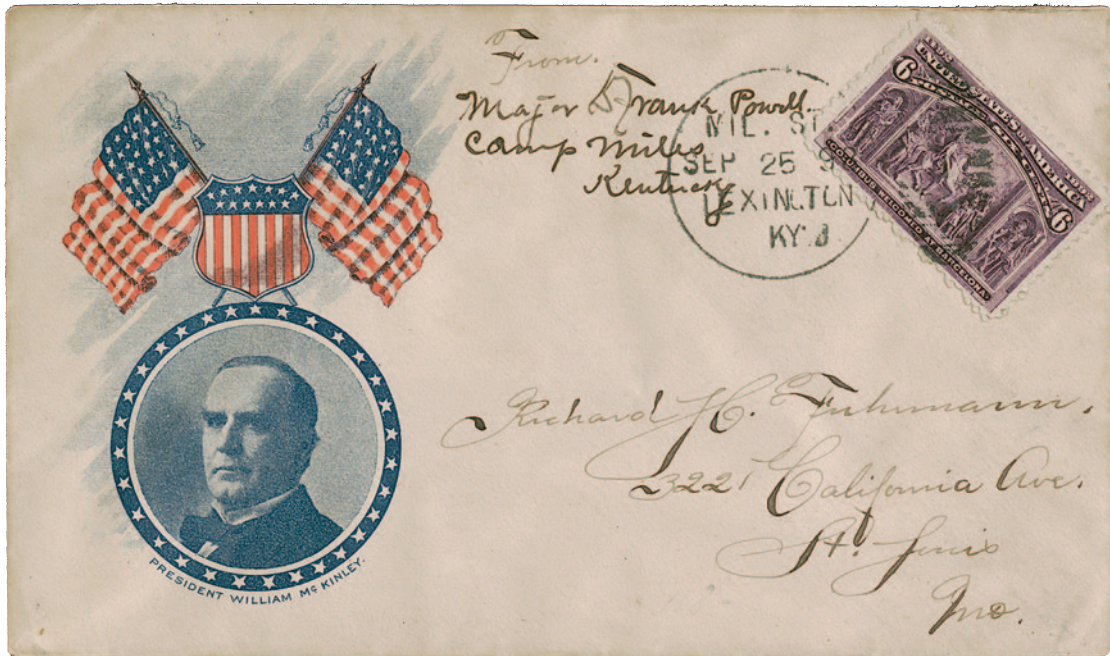 From.
Major D Frank Powell.
Camp Miles
Kentucky
MIL. ST
SEP 25 9
LEXINGTON
KY.
1492
1892
UNITED STATES OF AMERICA
6
6
COLUMBUS WELCOMED AT BARCELONA
PRESIDENT WILLIAM McKINLEY.
Richard H. Fuhrmann.
3221 California Ave.
St. Louis
Mo.